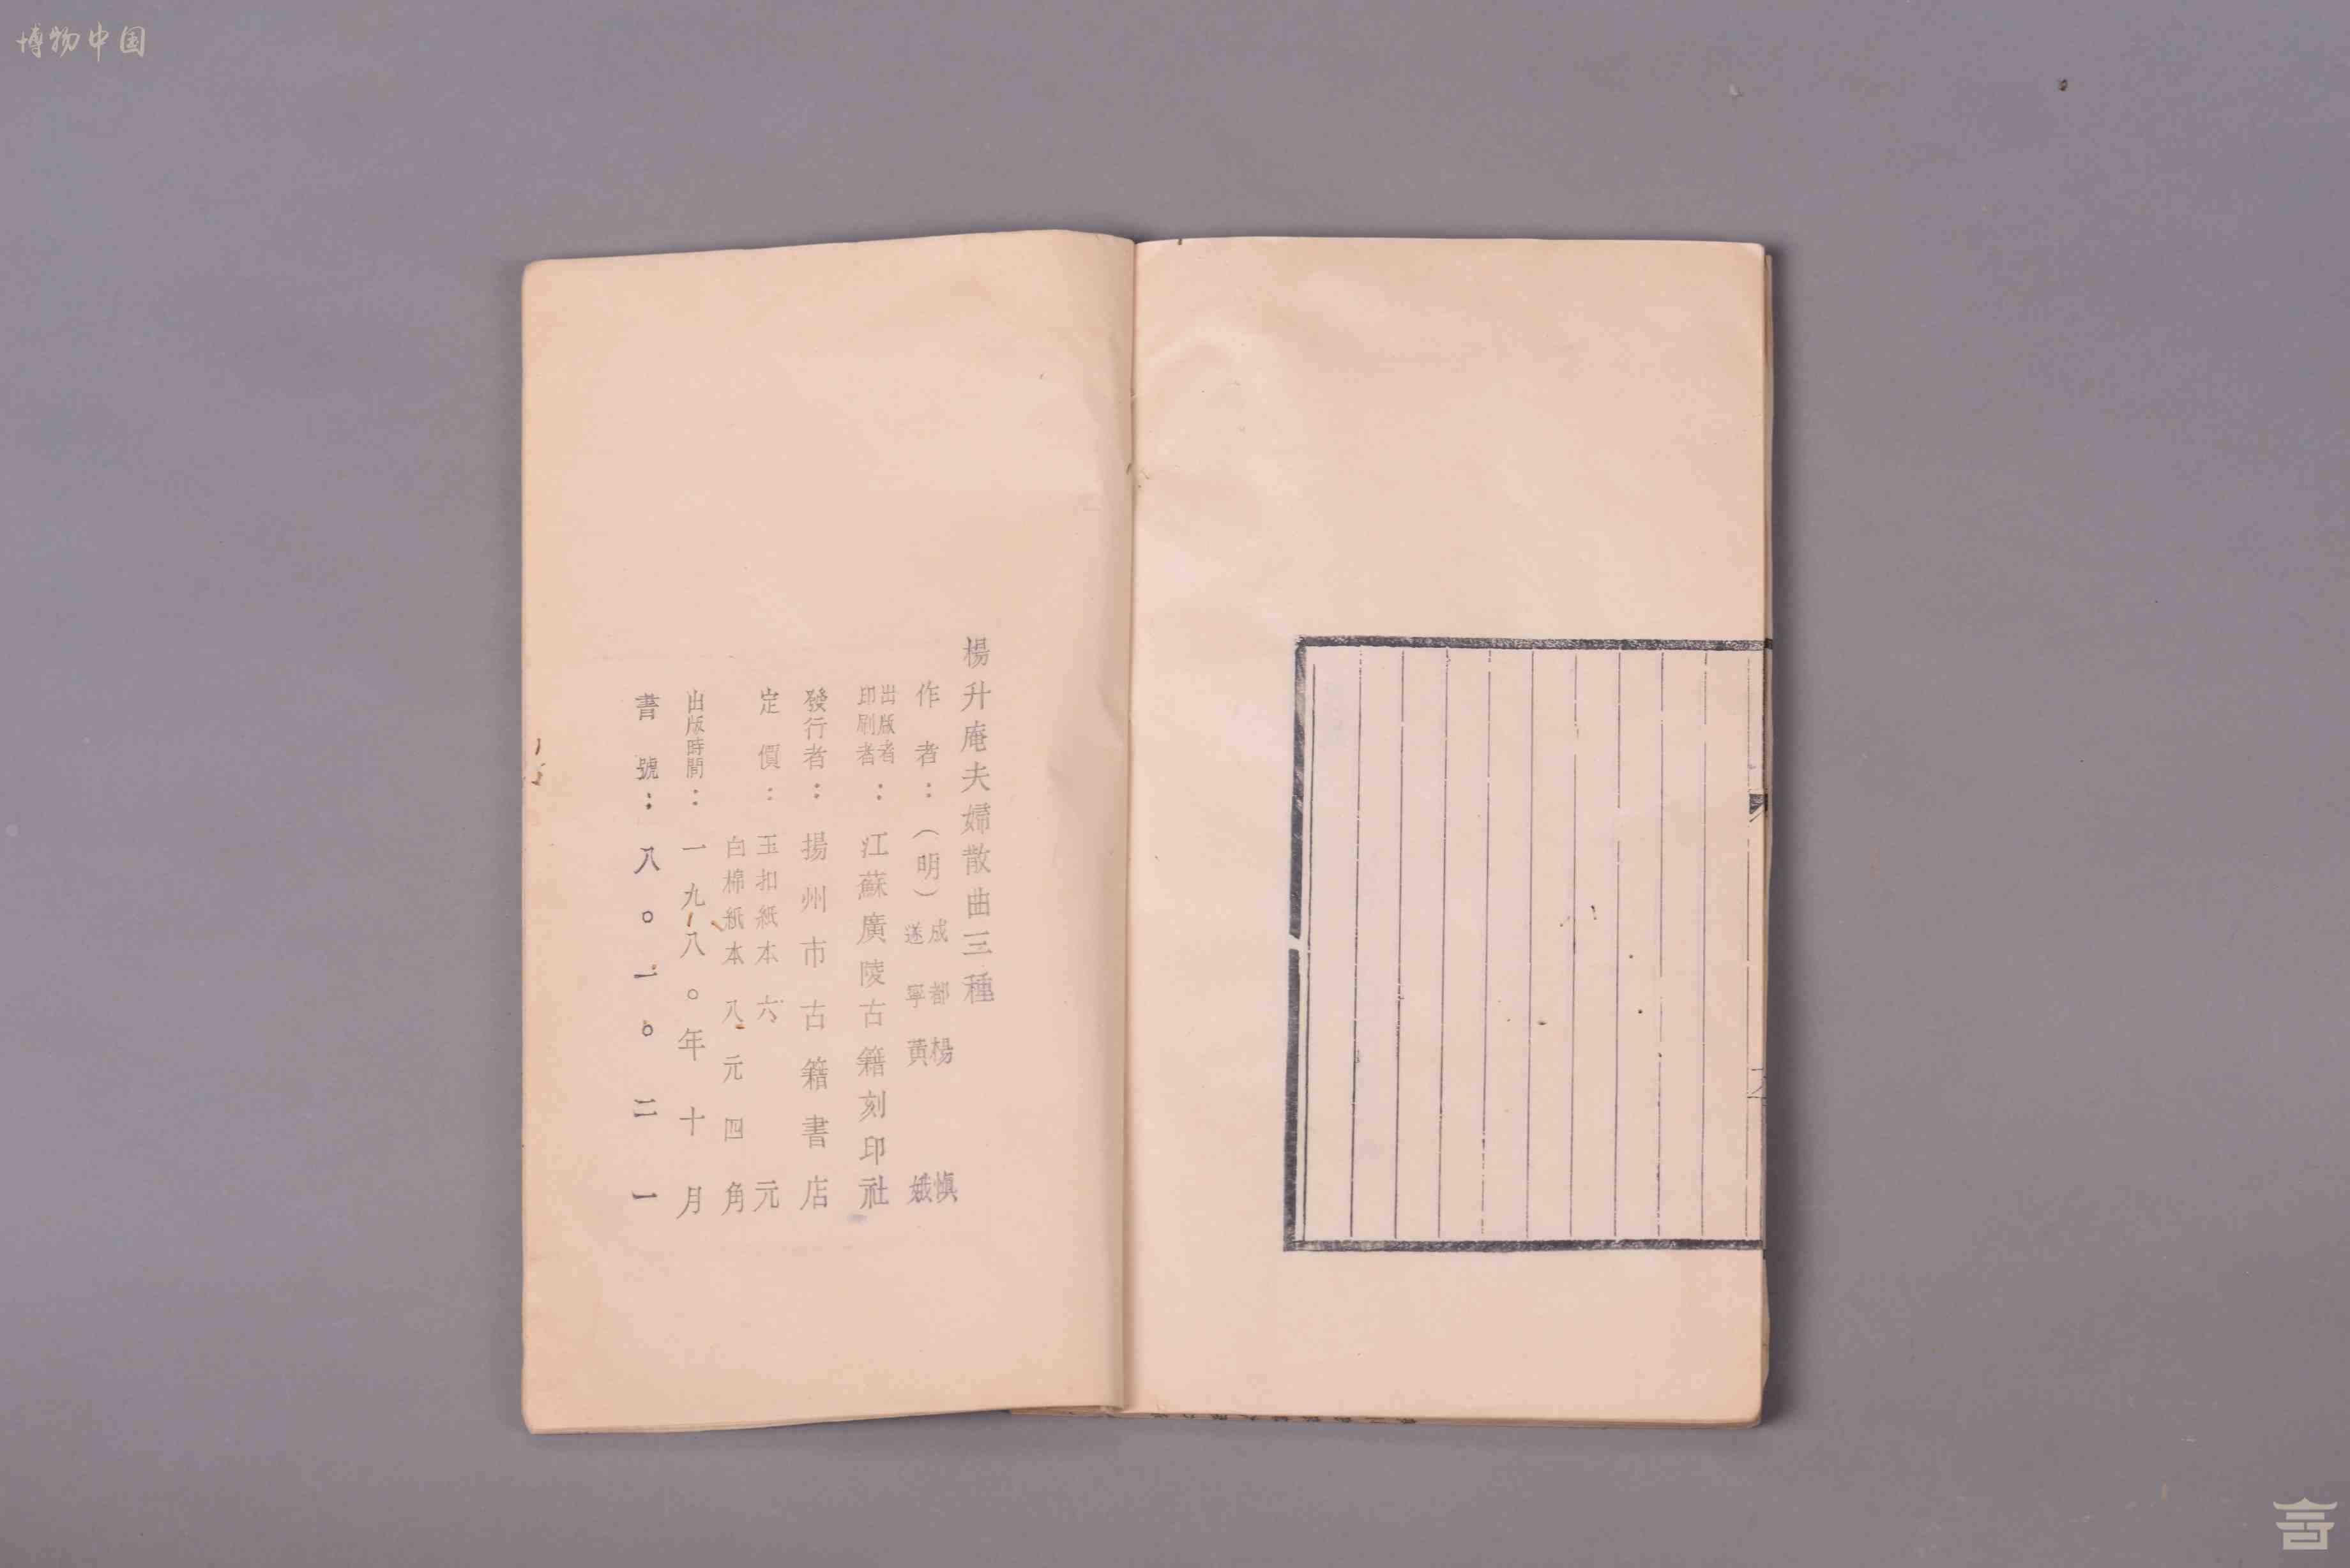 博物中国
楊升庵夫婦散曲三種
作者：（明）成都楊慎
遂寧黃娥
出版者
印刷者：江蘇廣陵古籍刻印社
發行者：揚州市古籍書店
定價：玉扣紙本六元
白棉紙本八元四角
出版時間：一九八〇年十月
書號：八〇一〇二一